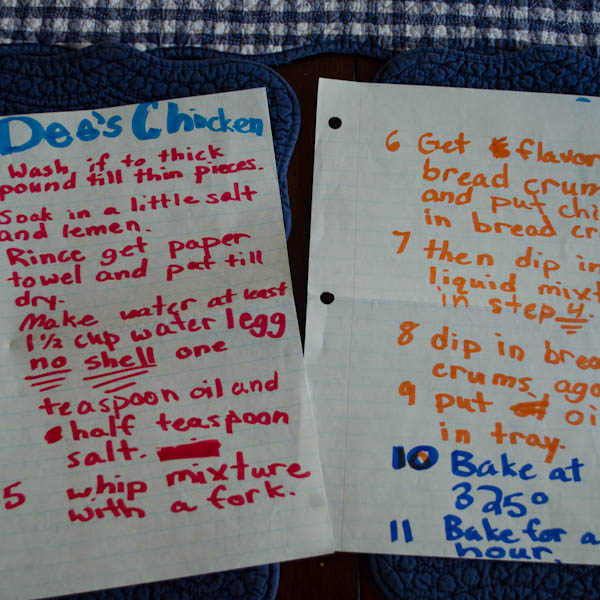 Dee's Chicken
Wash if to thick
pound till thin pieces.
Soak in a little salt
and lemen.
Rince get paper
towel and pat till
dry.
Make water at least
1½ cup water 1egg
no shell one
teaspoon oil and
half teaspoon
salt.
5 whip mixture
with a fork.
6 Get flavor
bread crum
and put chi
in bread cr
7 then dip in
liquid mixt
in step 4.
8 dip in brea
crums, aga
9 put oi
in tray.
10 Bake at
325°
11 Bake for a
hour.